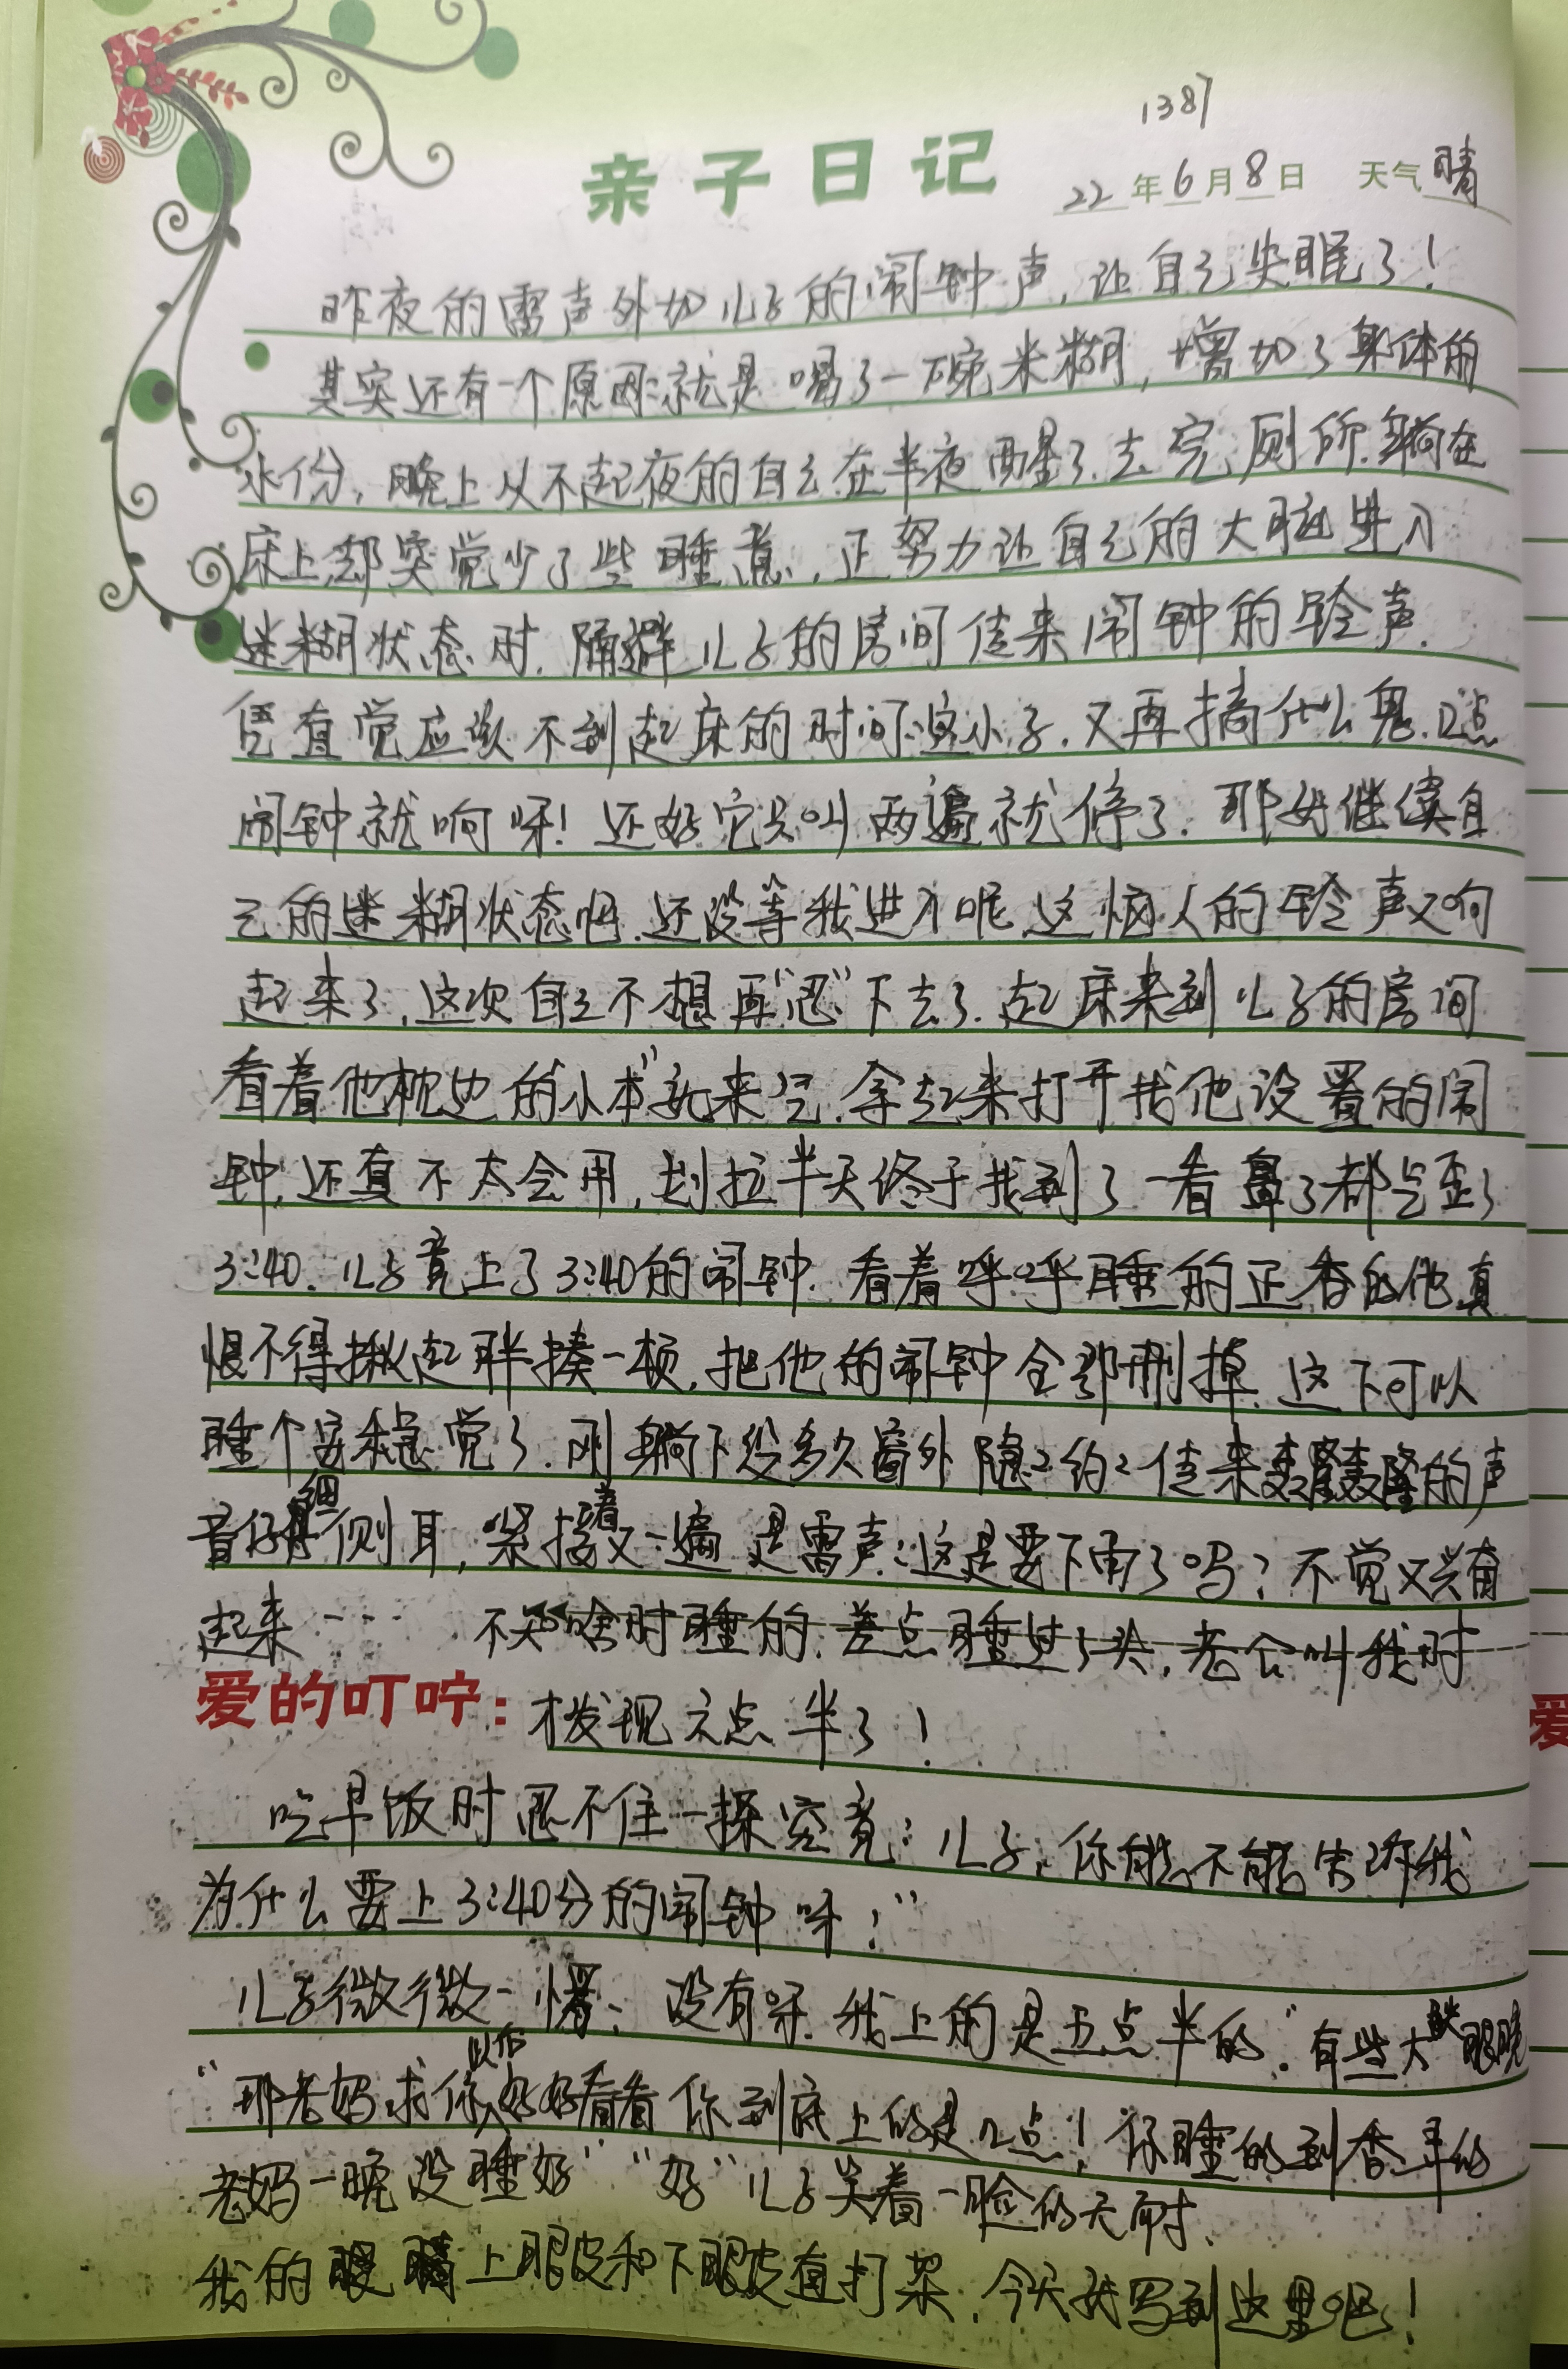 1387
亲子日记 22年6月8日 天气晴
昨夜的雷声外加儿子的闹钟声,让自己失眠了!
其实还有一个原因:就是喝了一碗米糊,增加了身体的
水份,晚上从不起夜的自己在半夜醒了.去完厕所.躺在
床上,却突觉少了些睡意,正努力让自己的大脑进入
迷糊状态时.隔避儿子的房间传来闹钟的铃声.
凭直觉应该不到起床的时间:这小子.又再搞什么鬼.口点
闹钟就响呀!还好它只叫两遍就停了.那好继续自
己的迷糊状态吧.还没等我进入呢.这恼人的铃声又响
起来了,这次自己不想再“忍”下去了.起床来到儿子的房间
看着他枕边的“小本”就来气.拿起来打开找他设置的闹
钟,还真不太会用,划拉半天终于找到了一看鼻子都气歪了
3:40.儿子竟上了3:40的闹钟.看着呼呼睡的正香的他真
恨不得揪起胖揍一顿,把他的闹钟全部删掉.这下可以
睡个安稳觉了.刚躺下没多久窗外隐2约2传来轰隆轰隆的声
音仔细侧耳,紧接着又一遍是雷声:这是要下雨了吗?不觉又兴奋
起来…… 不知啥时睡的.差点睡过了头,老公叫我时
爱的叮咛:才发现六点半了!
吃早饭时忍不住一探究竟:儿子,你能不能告诉我
为什么要上3:40分的闹钟呀!”
儿子微微一愣:没有呀.我上的是五点半的.”有些大眼瞪
“那老妈求你以后好好看看你到底上的是几点!你睡的到香年的
老妈一晚没睡好”“好”儿子笑着一脸的无耐.
我的眼睛上眼皮和下眼皮直打架.今天就写到这里吧!
爱